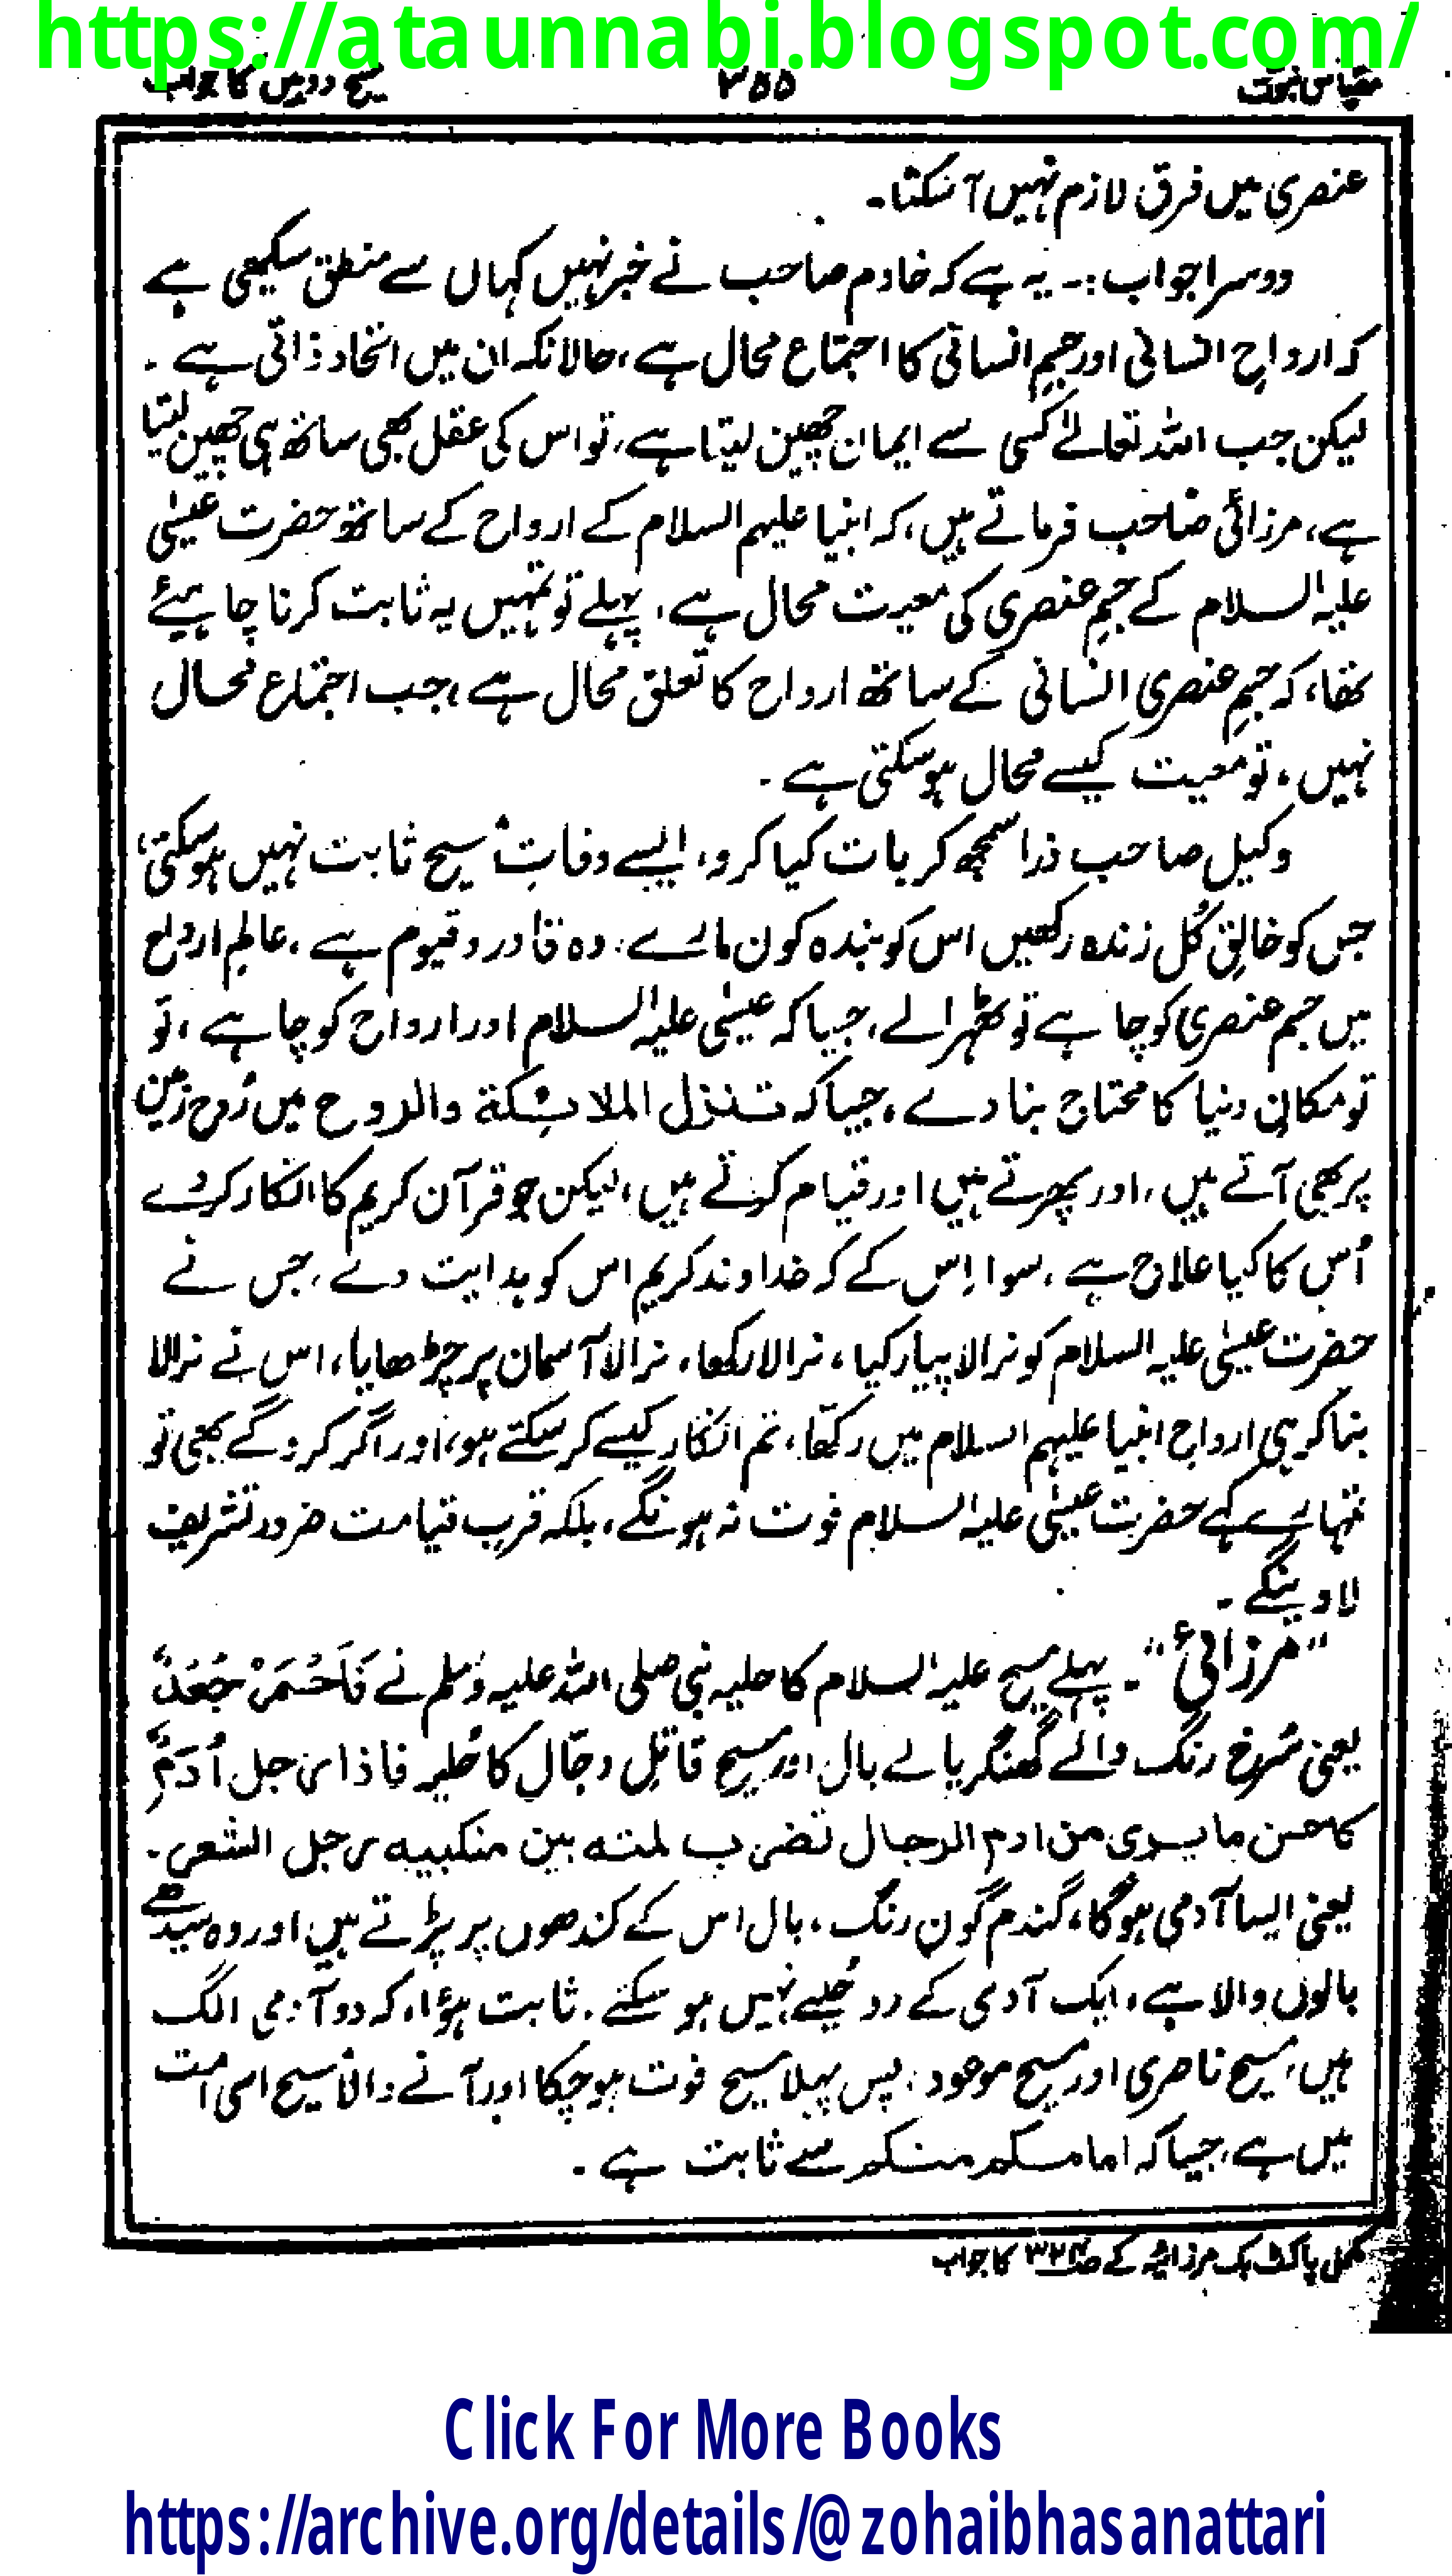 https://ataunnabi.blogspot.com/
مقیاس نبوت ۳۵۵ مسیح دو ہیں کا جواب
عنصری میں فرق لازم نہیں آ سکتا۔
دوسرا جواب :۔ یہ ہے کہ خادم صاحب نے خبر نہیں کہاں سے منطق سیکھی ہے
کہ ارواح انسانی اور جسم انسانی کا اجتماع محال ہے، حالانکہ ان میں اتحاد ذاتی ہے ۔
لیکن جب اللہ تعالےٰ کسی سے ایمان چھین لیتا ہے، تو اس کی عقل بھی ساتھ ہی چھین لیتا
ہے، مرزائی صاحب فرماتے ہیں، کہ انبیا علیہم السلام کے ارواح کے ساتھ حضرت عیسیٰ
علیہ السلام کے جسمِ عنصری کی معیت محال ہے، پہلے تو تمہیں یہ ثابت کرنا چاہیئے
تھا، کہ جسمِ عنصری انسانی کے ساتھ ارواح کا تعلق محال ہے، جب اجتماع محال
نہیں، تو معیت کیسے محال ہو سکتی ہے ۔
وکیل صاحب ذرا سمجھ کر بات کیا کرو، ایسے وفاتِ مسیح ثابت نہیں ہو سکتی،
جس کو خالقِ کُل زندہ رکھیں اس کو بندہ کون مارے، وہ قادر و قیوم ہے، عالمِ ارواح
میں جسم عنصری کو چاہے تو ٹھہرا لے، جیسا کہ عیسیٰ علیہ السلام اور ارواح کو چاہے، تو
تو مکانِ دنیا کا محتاج بنا دے، جیسا کہ تنزل الملائکة والروح میں رُوح زمین
پر بھی آتے ہیں، اور پھرتے ہیں اور قیام کرتے ہیں، لیکن جو قرآن کریم کا انکار کر دے
اُس کا کیا علاج ہے، سوا اِس کے کہ خداوند کریم اس کو ہدایت دے، جس نے
حضرت عیسیٰ علیہ السلام کو نرالا پیار کیا، نرالا رکھا، نرالا آسمان پر چڑھایا، اس نے نرالا
بنا کر ہی ارواح انبیا علیہم السلام میں رکھا، تم انکار کیسے کر سکتے ہو، اور اگر کرو گے بھی تو
تمہارے کہے حضرت عیسیٰ علیہ السلام فوت نہ ہونگے، بلکہ قربِ قیامت ضرور تشریف
لاوینگے ۔
”مرزائی“ ۔ پہلے مسیح علیہ السلام کا حلیہ نبی صلی اللہ علیہ وسلم نے فَاَحْمَرُ جَعْدٌ
یعنی سُرخ رنگ والے گھنگریالے بال اور مسیح قاتلِ دجّال کا حُلیہ فاذا رجل اٰدَمُ
کاحسن ما یری من ادم الرجال تضرب لمتہ بین منکبیہ رجل الشعر ۔
یعنی ایسا آدمی ہوگا، گندم گون رنگ، بال اس کے کندھوں پر پڑتے ہیں اور وہ سیدھے
بالوں والا ہے، ایک آدمی کے دو حُلیے نہیں ہو سکتے ۔ ثابت ہؤا، کہ دو آدمی الگ
ہیں، مسیح ناصری اور مسیح موعود، پس پہلا مسیح فوت ہو چکا اور آنے والا مسیح اسی امت
میں ہے، جیسا کہ امامکم منکم سے ثابت ہے ۔
مکمل پاکٹ بک مرزائیہ کے صہ ۳۲۴ کا جواب
Click For More Books
https://archive.org/details/@zohaibhasanattari